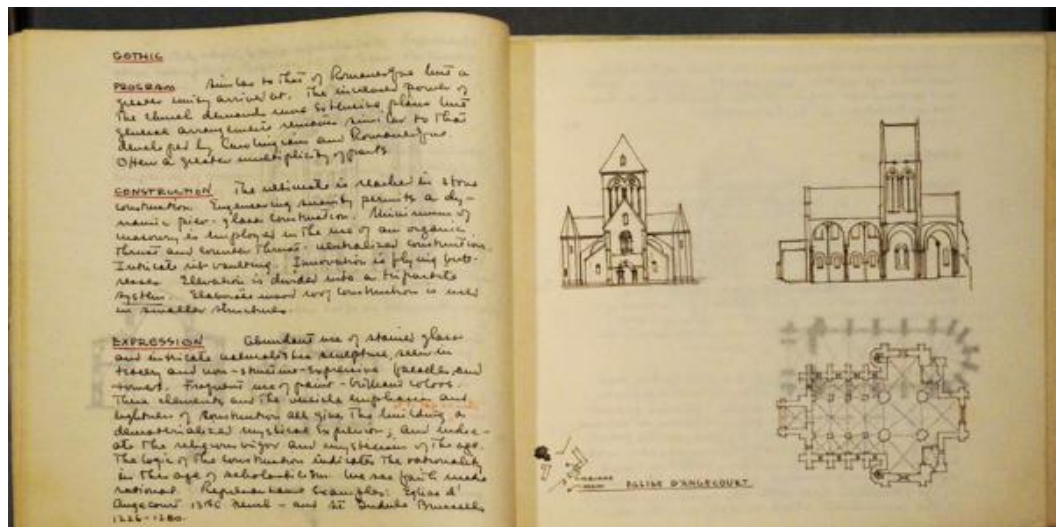 GOTHIC
PROGRAM Similar to that of Romanesque but a
greater unity arrived at. The increased power of
the church demands more extensive plans but
general arrangement remains similar to that
developed by Carolingian and Romanesque.
Often a greater multiplicity of parts
CONSTRUCTION The ultimate is reached in stone
construction. Engineering ingenuity permits a dy-
namic pier-glass construction. Minimum of
masonry is employed in the use of an organic
thrust and counter thrust-neutralized construction.
Intricate rib vaulting. Innovation is flying butt-
resses. Elevation is divided into a tripartite
system. Elaborate wood roof construction is used
in smaller structures.
EXPRESSION Abundant use of stained glass
and intricate naturalistic sculpture, seen in
tracery and non-structure-expressive facades and
towers. Frequent use of paint - brilliant colors.
These elements and the vertical emphasis and
lightness of construction all give the building a
dematerialized mystical expression; and indic-
ate the religious vigor and mysticism of the age.
The logic of the construction indicates the rationality
in this age of scholasticism. We see faith made
rational. Representative examples: Eglise d'
Angecourt 13th - and St Gudule Brussels
1226-1280.
EGLISE D'ANGECOURT